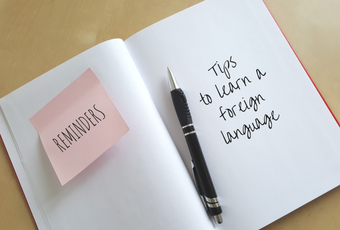 REMINDERS
Tips
to learn a
foreign
language